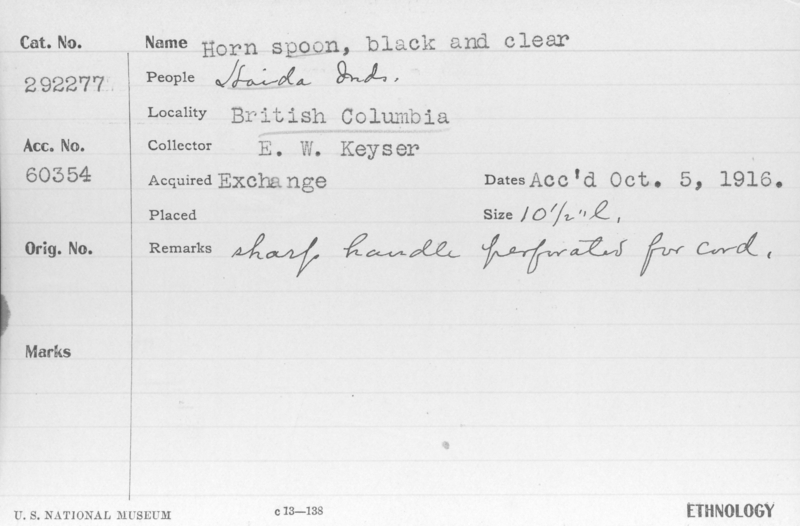 Cat. No.
292277
Acc. No.
60354
Orig. No.
Marks
Name Horn spoon, black and clear
People Haida Inds.
Locality British Columbia
Collector E. W. Keyser
Acquired Exchange Dates Acc'd Oct. 5, 1916.
Placed Size 10 1/2" l.
Remarks sharp handle perforated for cord.
U. S. NATIONAL MUSEUM c 13—138 ETHNOLOGY